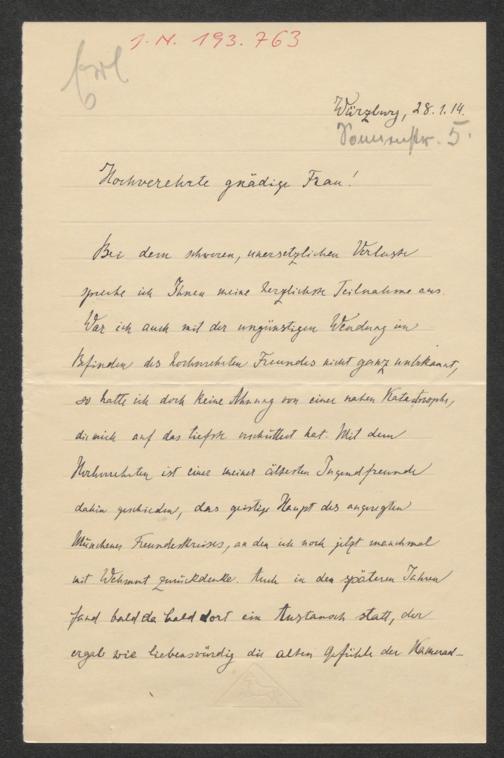 I.N. 193.763
Würzburg, 28.1.14.
Sonnenstr. 5.
Hochverehrte gnädige Frau!
Bei dem schweren, unersetzlichen Verluste
spreche ich Ihnen meine herzlichste Teilnahme aus.
War ich auch mit der ungünstigen Wendung im
Befinden des hochverehrten Freundes nicht ganz unbekannt,
so hatte ich doch keine Ahnung von einer nahen Katastrophe,
die mich auf das tiefste erschüttert hat. Mit dem
Hochverehrten ist einer meiner ältesten Jugendfreunde
dahin geschieden, das geistige Haupt des angeregten
Münchener Freundeskreises, an den ich noch jetzt manchmal
mit Wehmut zurückdenke. Auch in den späteren Jahren
fand bald da bald dort ein Austausch statt, der
ergab wie liebenswürdig die alten Gefühle der Kamerad-